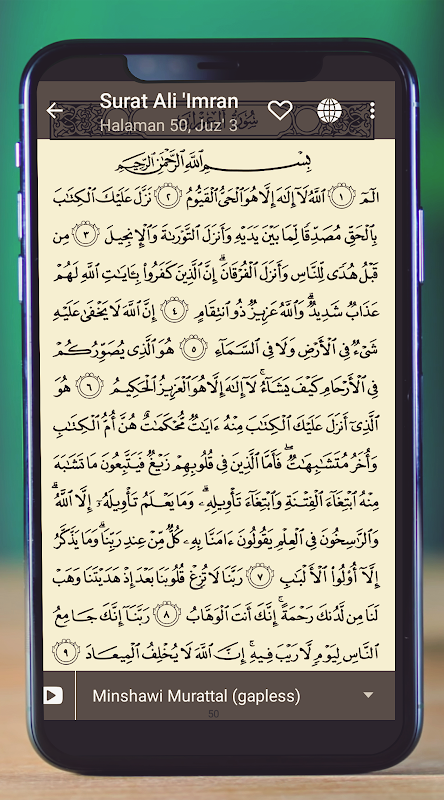 Surat Ali 'Imran
Halaman 50, Juz' 3
بِسْمِ اللَّهِ الرَّحْمَٰنِ الرَّحِيمِ
الٓمٓ ١ اللَّهُ لَآ إِلَٰهَ إِلَّا هُوَ الْحَيُّ الْقَيُّومُ ٢ نَزَّلَ عَلَيْكَ الْكِتَٰبَ
بِالْحَقِّ مُصَدِّقًا لِّمَا بَيْنَ يَدَيْهِ وَأَنزَلَ التَّوْرَىٰةَ وَالْإِنجِيلَ ٣ مِن
قَبْلُ هُدًى لِّلنَّاسِ وَأَنزَلَ الْفُرْقَانَ ۗ إِنَّ الَّذِينَ كَفَرُوا بِـَٔايَٰتِ اللَّهِ لَهُمْ
عَذَابٌ شَدِيدٌ ۗ وَاللَّهُ عَزِيزٌ ذُو انتِقَامٍ ٤ إِنَّ اللَّهَ لَا يَخْفَىٰ عَلَيْهِ
شَىْءٌ فِى الْأَرْضِ وَلَا فِى السَّمَآءِ ٥ هُوَ الَّذِى يُصَوِّرُكُمْ
فِى الْأَرْحَامِ كَيْفَ يَشَآءُ ۚ لَآ إِلَٰهَ إِلَّا هُوَ الْعَزِيزُ الْحَكِيمُ ٦ هُوَ
الَّذِىٓ أَنزَلَ عَلَيْكَ الْكِتَٰبَ مِنْهُ ءَايَٰتٌ مُّحْكَمَٰتٌ هُنَّ أُمُّ الْكِتَٰبِ
وَأُخَرُ مُتَشَٰبِهَٰتٌ ۖ فَأَمَّا الَّذِينَ فِى قُلُوبِهِمْ زَيْغٌ فَيَتَّبِعُونَ مَا تَشَٰبَهَ
مِنْهُ ابْتِغَآءَ الْفِتْنَةِ وَابْتِغَآءَ تَأْوِيلِهِ ۗ وَمَا يَعْلَمُ تَأْوِيلَهُٓ إِلَّا اللَّهُ ۗ
وَالرَّٰسِخُونَ فِى الْعِلْمِ يَقُولُونَ ءَامَنَّا بِهِ كُلٌّ مِّنْ عِندِ رَبِّنَا ۗ وَمَا يَذَّكَّرُ
إِلَّآ أُولُوا الْأَلْبَٰبِ ٧ رَبَّنَا لَا تُزِغْ قُلُوبَنَا بَعْدَ إِذْ هَدَيْتَنَا وَهَبْ
لَنَا مِن لَّدُنكَ رَحْمَةً ۚ إِنَّكَ أَنتَ الْوَهَّابُ ٨ رَبَّنَآ إِنَّكَ جَامِعُ
النَّاسِ لِيَوْمٍ لَّا رَيْبَ فِيهِ ۚ إِنَّ اللَّهَ لَا يُخْلِفُ الْمِيعَادَ ٩
Minshawi Murattal (gapless)
50